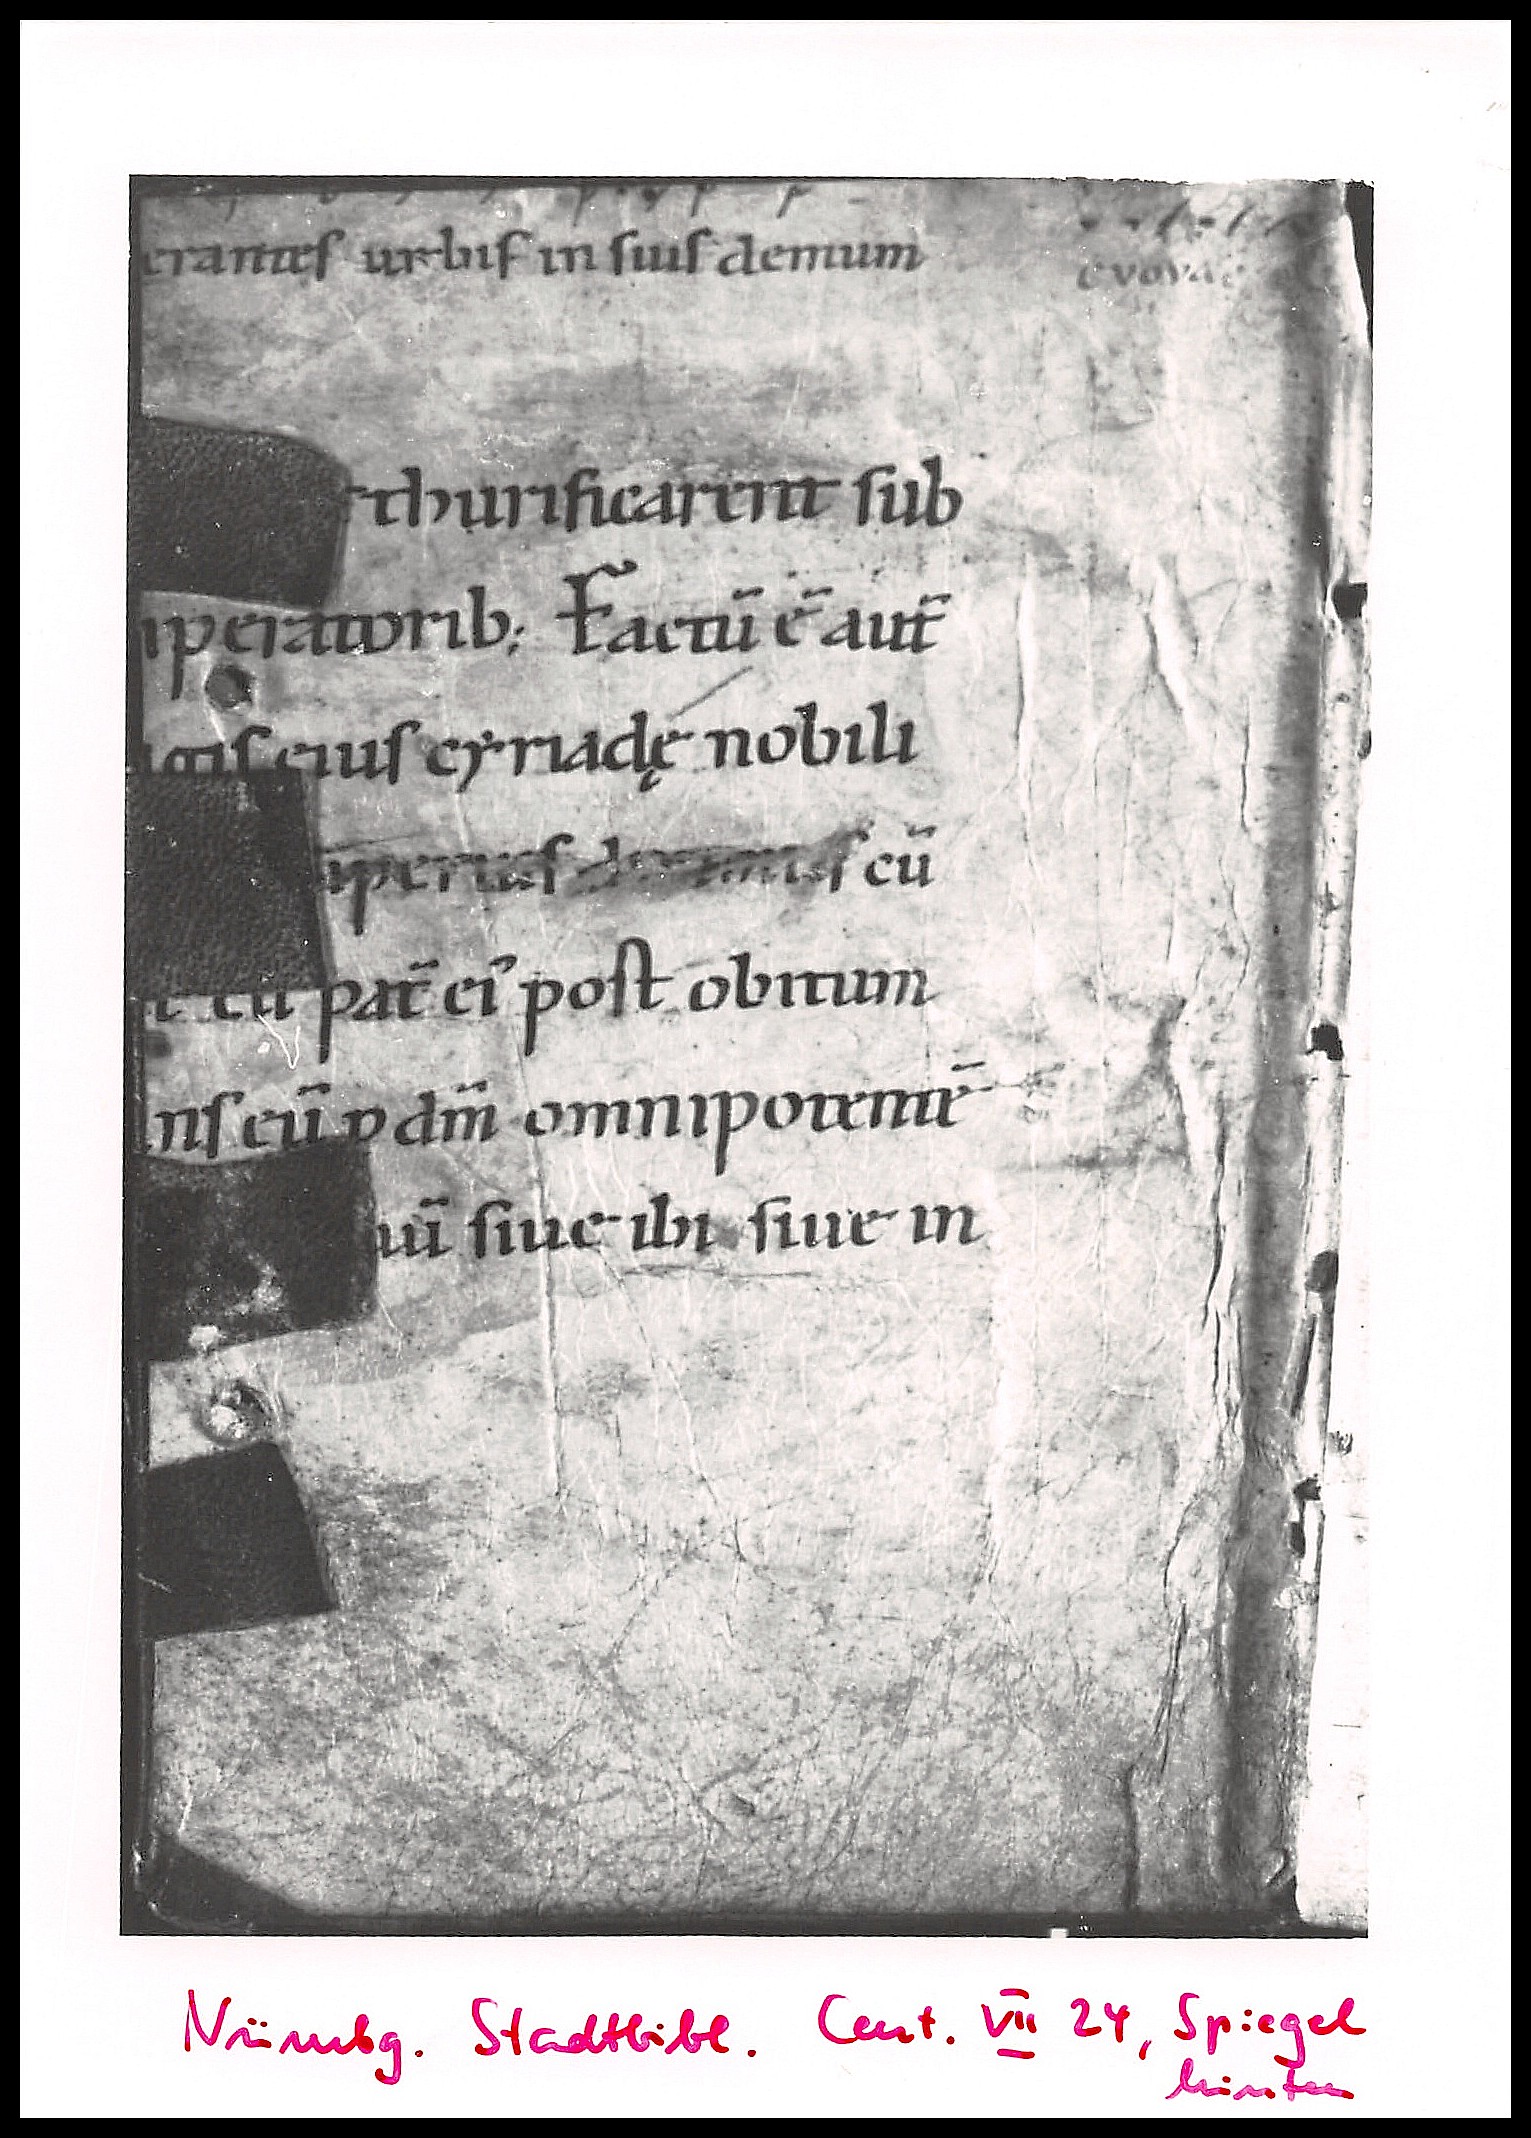 erantes urbis in suis demum
evovae
thurificarent sub
iperatorib; Factū ē aut̄
gis eius cyriadę nobili
iperius cū
t cū pat̄ ei᾽ post obitum
ns cū p dm̄ omnipotentē
uū siue ibi siue in
Nürnbg. Stadtbibl. Cent. VII 24, Spiegel
hinten